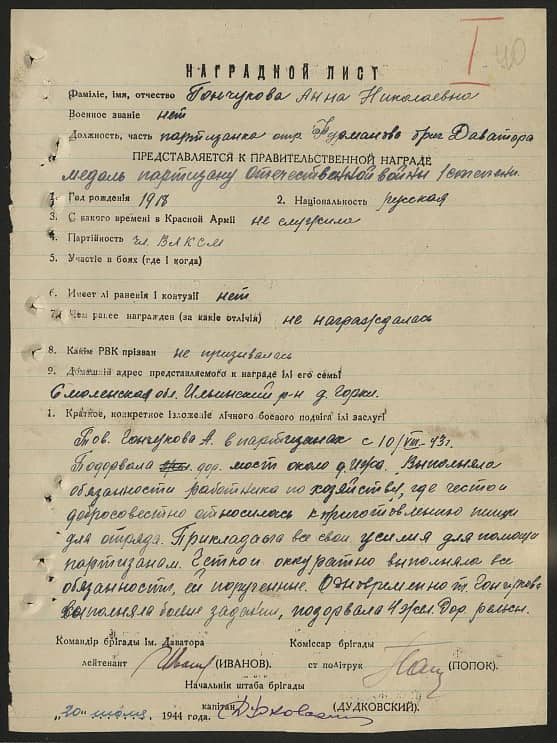 I
40
НАГРАДНОЙ ЛИСТ
Фаміліе, імя, отчество Гончукова Анна Николаевна
Военное званіе нет
Должность, часть партизанка отр. Фурманова бриг Даватора
ПРЕДСТАВЛЯЕТСЯ К ПРАВИТЕЛЬСТВЕННОЙ НАГРАДЕ
медаль партизану отечественной войны 1 степени.
1. Год рождения 1918 2. Национальность русская
3. С какого времени в Красной Арміі не служила
4. Партійность чл. ВЛКСМ
5. Участіе в боях (где і когда)
6. Имеет лі раненія і контузіі нет
7. Чем ранее награжден (за какіе отлічія) не награждалась
8. Какім РВК прізван не призывалась
9. Домашній адрес представляемого к награде ілі его семьі
Смоленская обл. Ильинский р-н д. Горки.
1. Краткое, конкретное ізложеніе лічного боевого подвіга ілі заслуг
Тов. Гончукова А. в партизанах с 10/VIII-43г.
Подорвала дор. мост около д. Ижа. Выполняла
обязанности работника по хозяйству, где честно и
добросовестно относилась к приготовлению пищи
для отряда. Прикладала все свои усилия для помощи
партизанам. Естно и оккуратно выполняла все
обязанности, ей порученные. Одновременно т. Гончукова
выполняла боевые задания, подорвала 4 жел. дор. рельсы.
Командір брігады ім. Даватора Коміссар брігады
лейтенант (ИВАНОВ). ст політрук (ПОПОК).
Начальнік штаба брігады
капітан (ДУДКОВСКИЙ).
"20" июня 1944 года.